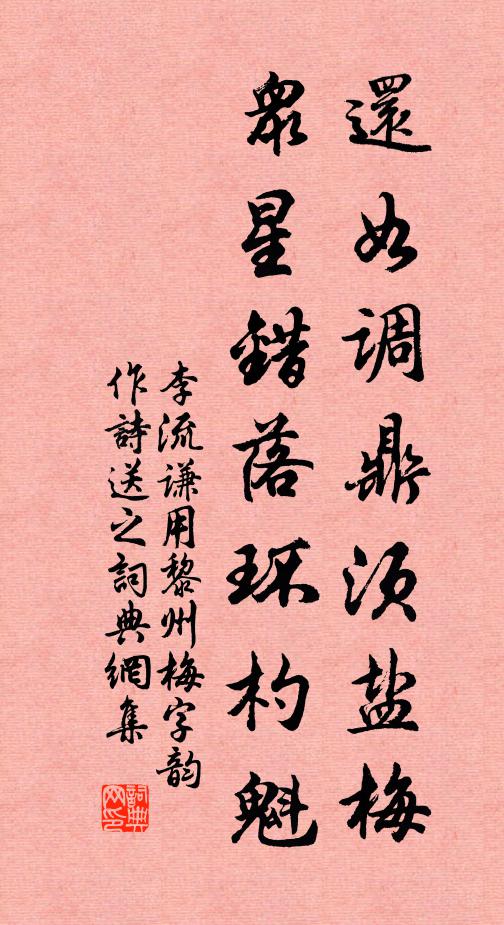 還如調鼎須盐梅
眾星錯落环杓魁
李流谦用黎州梅字韵
作詩送之詞典網集
詞典
网印